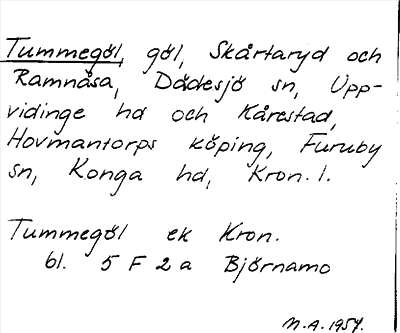 Tummegöl, göl, Skårtaryd och
Ramnåsa, Dädesjö sn, Upp-
vidinge hd och Kårestad,
Hovmantorps köping, Furuby
sn, Konga hd, Kron. l.
Tummegöl ek Kron.
bl. 5 F 2 a Björnamo
M.A. 1954.